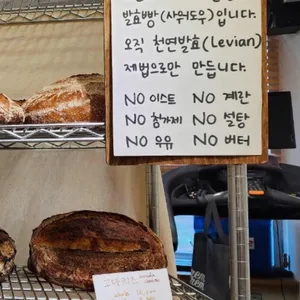 발효빵(사워도우)입니다.
오직 천연발효(Levian)
제법으로만 만듭니다.
NO 이스트 NO 계란
NO 첨가제 NO 설탕
NO 우유 NO 버터
고다치즈